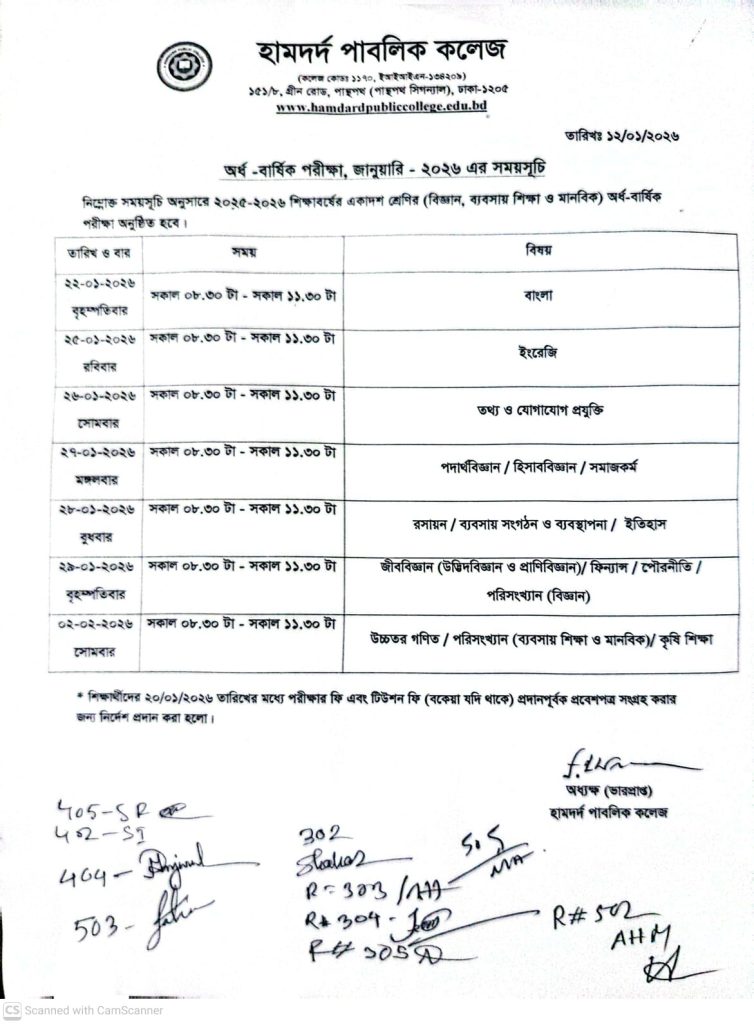 হামদর্দ পাবলিক কলেজ
(কলেজ কোডঃ ১১৭০, ইআইআইএন-১৩৪২০৯)
১৫১/৮, গ্রীন রোড, পান্থপথ (পান্থপথ সিগন্যাল), ঢাকা-১২০৫
www.hamdardpubliccollege.edu.bd
তারিখঃ ১২/০১/২০২৬
অর্ধ -বার্ষিক পরীক্ষা, জানুয়ারি - ২০২৬ এর সময়সূচি
নিম্নোক্ত সময়সূচি অনুসারে ২০২৫-২০২৬ শিক্ষাবর্ষের একাদশ শ্রেণির (বিজ্ঞান, ব্যবসায় শিক্ষা ও মানবিক) অর্ধ-বার্ষিক
পরীক্ষা অনুষ্ঠিত হবে।
তারিখ ও বার সময় বিষয়
২২-০১-২০২৬
বৃহস্পতিবার সকাল ০৮.৩০ টা - সকাল ১১.৩০ টা বাংলা
২৫-০১-২০২৬ সকাল ০৮.৩০ টা - সকাল ১১.৩০ টা
রবিবার ইংরেজি
২৬-০১-২০২৬ সকাল ০৮.৩০ টা - সকাল ১১.৩০ টা
সোমবার তথ্য ও যোগাযোগ প্রযুক্তি
২৭-০১-২০২৬ সকাল ০৮.৩০ টা - সকাল ১১.৩০ টা
মঙ্গলবার পদার্থবিজ্ঞান / হিসাববিজ্ঞান / সমাজকর্ম
২৮-০১-২০২৬ সকাল ০৮.৩০ টা - সকাল ১১.৩০ টা
বুধবার রসায়ন / ব্যবসায় সংগঠন ও ব্যবস্থাপনা / ইতিহাস
২৯-০১-২০২৬ সকাল ০৮.৩০ টা - সকাল ১১.৩০ টা জীববিজ্ঞান (উদ্ভিদবিজ্ঞান ও প্রাণিবিজ্ঞান)/ ফিন্যান্স / পৌরনীতি /
বৃহস্পতিবার পরিসংখ্যান (বিজ্ঞান)
০২-০২-২০২৬ সকাল ০৮.৩০ টা - সকাল ১১.৩০ টা
সোমবার উচ্চতর গণিত / পরিসংখ্যান (ব্যবসায় শিক্ষা ও মানবিক)/ কৃষি শিক্ষা
* শিক্ষার্থীদের ২০/০১/২০২৬ তারিখের মধ্যে পরীক্ষার ফি এবং টিউশন ফি (বকেয়া যদি থাকে) প্রদানপূর্বক প্রবেশপত্র সংগ্রহ করার
জন্য নির্দেশ প্রদান করা হলো।
অধ্যক্ষ (ভারপ্রাপ্ত)
হামদর্দ পাবলিক কলেজ
405-SR
402-SI
404-
503-
302
R=303
505
R# 304-
R# 305
R# 502
AHM
CS Scanned with CamScanner